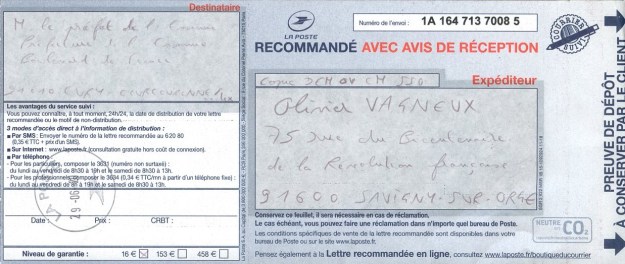 Destinataire
M. le préfet de
Boulevard de France
Les avantages du service suivi :
Vous pouvez connaître, à tout moment, 24h/24, la date de distribution de votre lettre
recommandée ou le motif de non-distribution.
3 modes d'accès direct à l'information de distribution :
Par SMS : Envoyer le numéro de la lettre recommandée au 6 20 80
(0,35 € TTC + prix d'un SMS).
Sur Internet : www.laposte.fr (consultation gratuite hors coût de connexion).
Par téléphone :
- Pour les particuliers, composez le 3631 (numéro non surtaxé) :
du lundi au vendredi de 8h30 à 19h et le samedi de 8h30 à 13h.
- Pour les professionnels, composez le 3634 (0,34 € TTC/mn à partir d'un téléphone fixe) :
du lundi au vendredi de 8h à 19h et le samedi de 8h30 à 13h.
LA PO
Date : Prix : CRBT :
Niveau de garantie : 16 € 153 € 458 €
LA POSTE
Numéro de l'envoi : 1A 164 713 7008 5
RECOMMANDÉ AVEC AVIS DE RÉCEPTION
Expéditeur
Olivier VAGNEUX
75 rue du Bicentenaire
de la Révolution française
91600 SAVIGNY-SUR-ORGE
Conservez ce feuillet, il sera nécessaire en cas de réclamation.
Le cas échéant, vous pouvez faire une réclamation dans n'importe quel bureau de Poste.
Les conditions spécifiques de vente de la lettre recommandée sont disponibles dans votre
bureau de Poste ou sur le site www.laposte.fr.
Pensez également à la Lettre recommandée en ligne, consultez www.laposte.fr/boutiqueducourrier
NEUTRE
CO2
PREUVE DE DÉPÔT
À CONSERVER PAR LE CLIENT